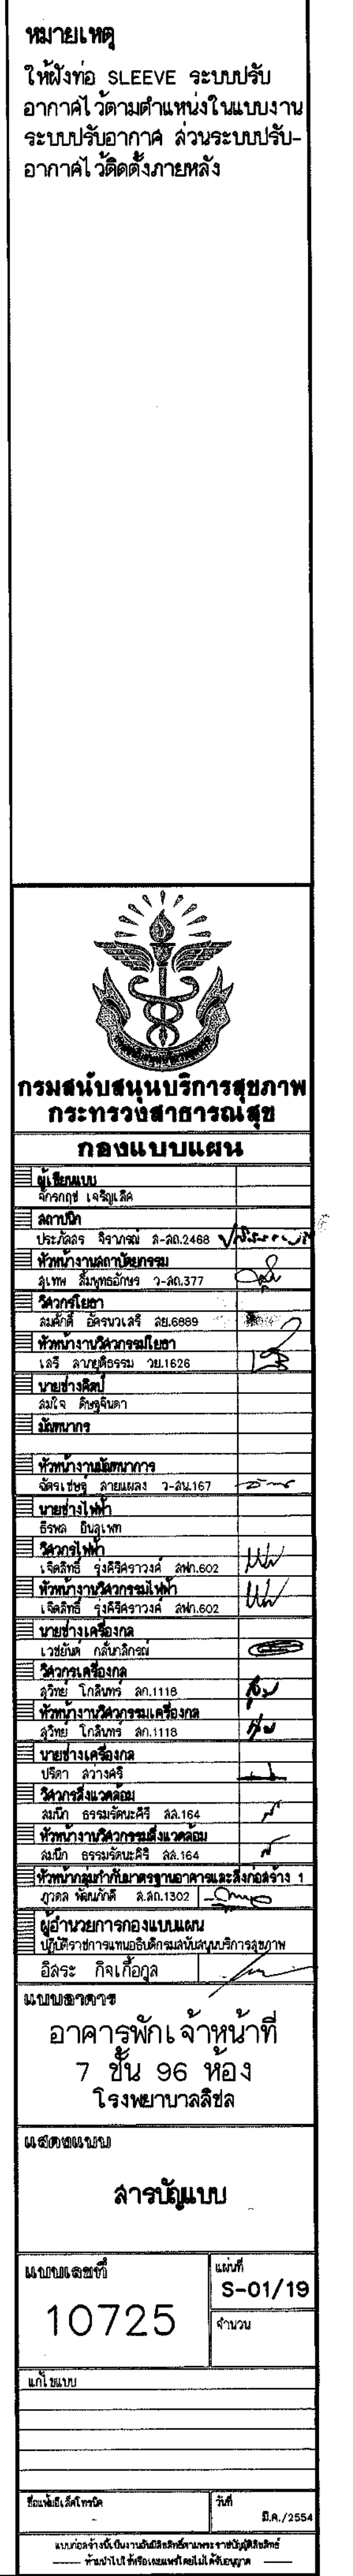 หมายเหตุ
ให้ฝังท่อ SLEEVE ระบบปรับ
อากาศไว้ตามตำแหน่งในแบบงาน
ระบบปรับอากาศ ส่วนระบบปรับ-
อากาศไว้ติดตั้งภายหลัง
กรมสนับสนุนบริการสุขภาพ
กระทรวงสาธารณสุข
กองแบบแผน
ผู้เขียนแบบ
จักรกฤช เจริญเลิศ
สถาปนิก
ประภัสสร จิราภรณ์ ส-สถ.2468
หัวหน้างานสถาปัตยกรรม
สุเทพ ลิ้มพุทธอักษร ว-สถ.377
วิศวกรโยธา
สมศักดิ์ อัครนวเสรี สย.6889
หัวหน้างานวิศวกรรมโยธา
เสรี ลาภยุติธรรม วย.1626
นายช่างศิลป์
สมใจ ดิษฐจินดา
มัณฑนากร
หัวหน้างานมัณฑนาการ
ฉัตรเชษฐ์ สายแผลง ว-สน.167
นายช่างไฟฟ้า
ธีรพล อินสุเพท
วิศวกรไฟฟ้า
เจิดสิทธิ์ รุ่งศิริศราวงศ์ สฟก.602
หัวหน้างานวิศวกรรมไฟฟ้า
เจิดสิทธิ์ รุ่งศิริศราวงศ์ สฟก.602
นายช่างเครื่องกล
เวชยันต์ กลั่นกสิกรณ์
วิศวกรเครื่องกล
สุวิทย์ โกสินทร์ สก.1118
หัวหน้างานวิศวกรรมเครื่องกล
สุวิทย์ โกสินทร์ สก.1118
นายช่างเครื่องกล
ปรีดา สว่างศรี
วิศวกรสิ่งแวดล้อม
สมนึก ธรรมรัตนะคิรี สส.164
หัวหน้างานวิศวกรรมสิ่งแวดล้อม
สมนึก ธรรมรัตนะคิรี สส.164
หัวหน้ากลุ่มกำกับมาตรฐานอาคารและสิ่งก่อสร้าง 1
ภูวดล พัฒนภักดี ส.สถ.1302
ผู้อำนวยการกองแบบแผน
ปฏิบัติราชการแทนอธิบดีกรมสนับสนุนบริการสุขภาพ
อิสระ กิจเกื้อกูล
แบบอาคาร
อาคารพักเจ้าหน้าที่
7 ชั้น 96 ห้อง
โรงพยาบาลสิชล
แสดงแบบ
สารบัญแบบ
แบบเลขที่
10725
แผ่นที่
S-01/19
จำนวน
แก้ไขแบบ
ชื่อแฟ้มอิเล็คโทรนิค
วันที่
มี.ค./2554
แบบก่อสร้างนี้เป็นงานอันมีลิขสิทธิ์ตามพระราชบัญญัติลิขสิทธิ์
ห้ามนำไปใช้หรือเผยแพร่โดยไม่ได้รับอนุญาต